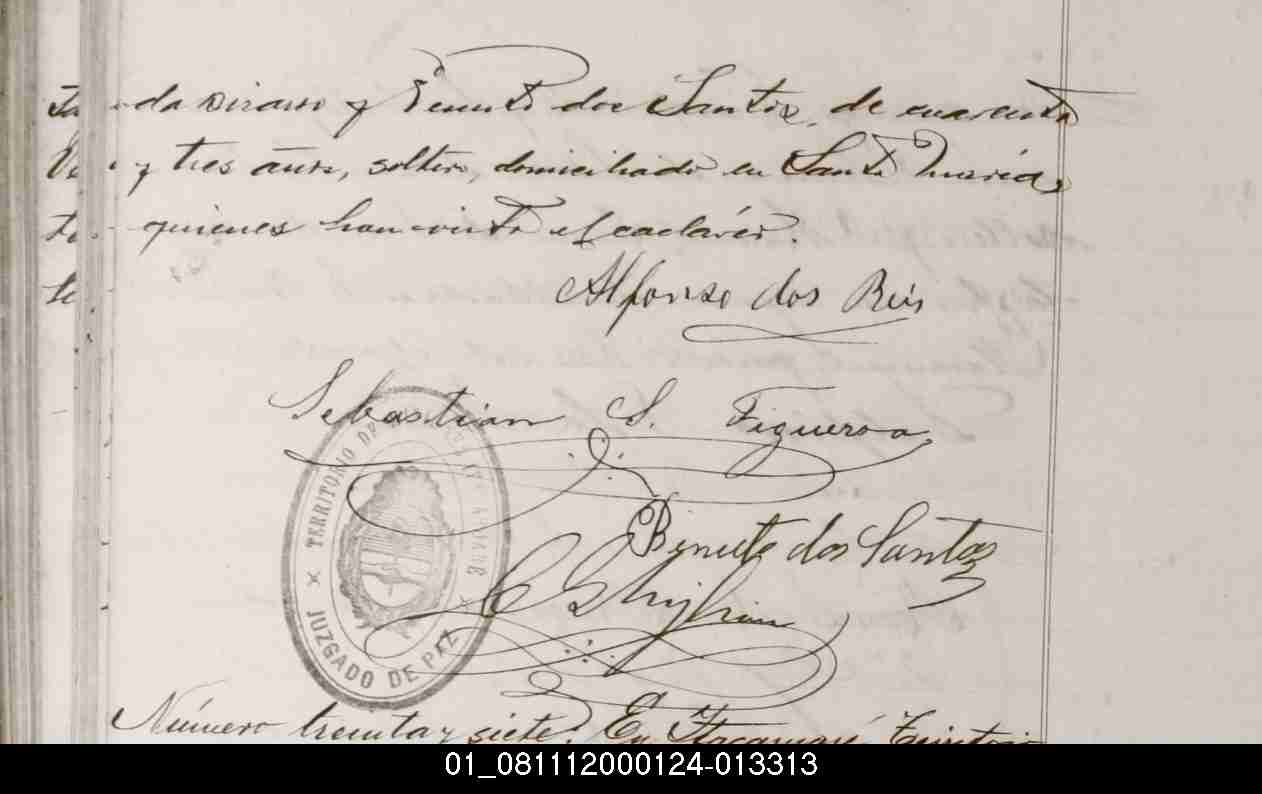 y Benuto dos Santos, de cuarenta
y tres años, soltero, domiciliado en Santa María,
quienes han visto el cadáver.
Alfonso dos Reis
Sebastian S. Figueroa
Benuto dos Santos
TERRITORIO DE
JUZGADO DE PAZ
Número treinta y siete. En Itacaruaré, Territorio
01_081112000124-013313